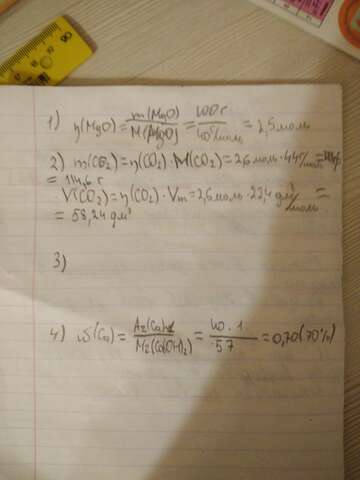 1) γ(MgO) = m(MgO)/M(MgO) = 100г/40г/моль = 2,5 моль
2) m(CO2) = γ(CO2) · M(CO2) = 2,6 моль · 44г/моль =
= 114,6 г
V(CO2) = γ(CO2) · Vm = 2,6 моль · 22,4 дм³/моль =
= 58,24 дм³
3)
4) ω(Ca) = Az(Ca)·1/Mz(Ca(OH)2) = 40 · 1/57 = 0,70 (70%)